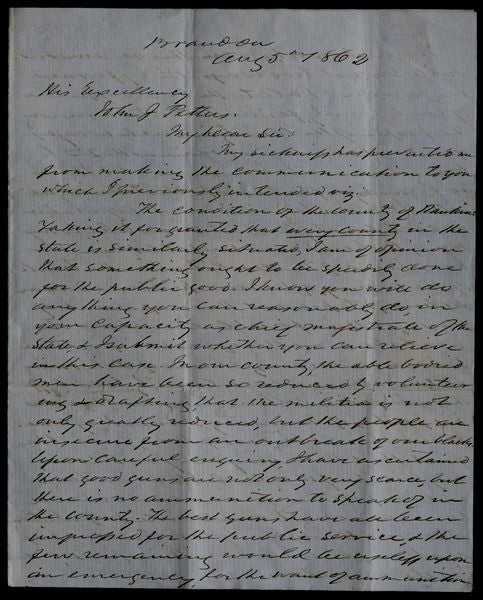 Brandon
Aug 5th 1862
His Excellency
John J Pettus.
My dear Sir:
My sickness has prevented me
from making the communication to you
which I previously intended viz:
The condition of the County of Rankin
Taking it for granted that every County in the
state is similarly situated, I am of opinion
that something ought to be speedily done
for the public good. I know you will do
anything you can reasonably do, in
your capacity as chief magistrate of the
State & I submit whether you can relieve
in this case. In our county the able bodied
men have been so reduced by volunteer
ing & drafting that the militia is not
only greatly reduced, but the people are
insecure from an outbreak of our blacks.
Upon careful enquiry I have ascertained
that good guns are not only very scarce but
there is no ammunition to speak of in
the county. The best guns have all been
impressed for the public service, & the
few remaining would be useless upon
an emergency, for the want of ammunition